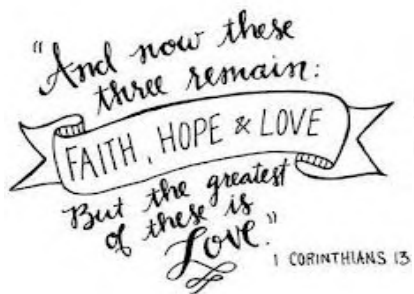 "And now these
three remain:
FAITH, HOPE & LOVE
But the greatest
of these is
Love."
1 CORINTHIANS 13